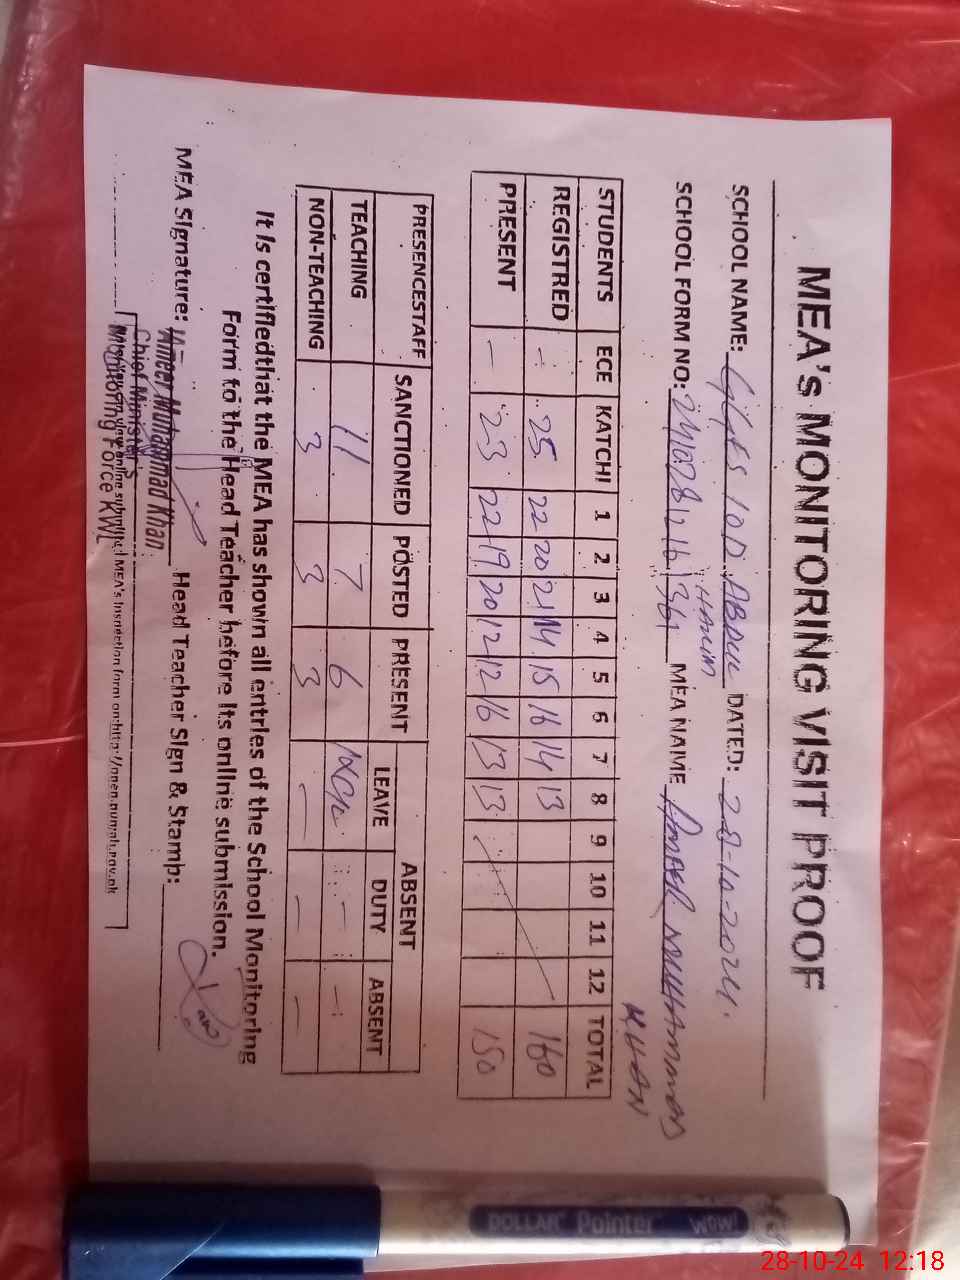 MEA's MONITORING VISIT PROOF
SCHOOL NAME: 10D ABDUL HAKIM DATED: 28-10-2024.
SCHOOL FORM NO: MEA NAME AMEER MUHAMMAD KHAN
STUDENTS ECE KATCHI 1 2 3 4 5 6 7 8 9 10 11 12 TOTAL
REGISTRED - 25 22 20 21 14 15 16 14 13 160
PRESENT - 23 22 19 20 12 12 16 13 13 150
PRESENCESTAFF SANCTIONED POSTED PRESENT ABSENT
LEAVE DUTY ABSENT
TEACHING 11 7 6 - -
NON-TEACHING 3 3 3 - - -
It is certifiedthat the MEA has shown all entries of the School Monitoring
Form to the Head Teacher before its online submission.
MEA Signature: Ameer Muhammad Khan Head Teacher Sign & Stamp:
Chief Minister's
Monitoring Force KWL
MEA's inspection form on:http://open.punjab.gov.pk
DOLLAR Pointer WOW!
28-10-24 12:18